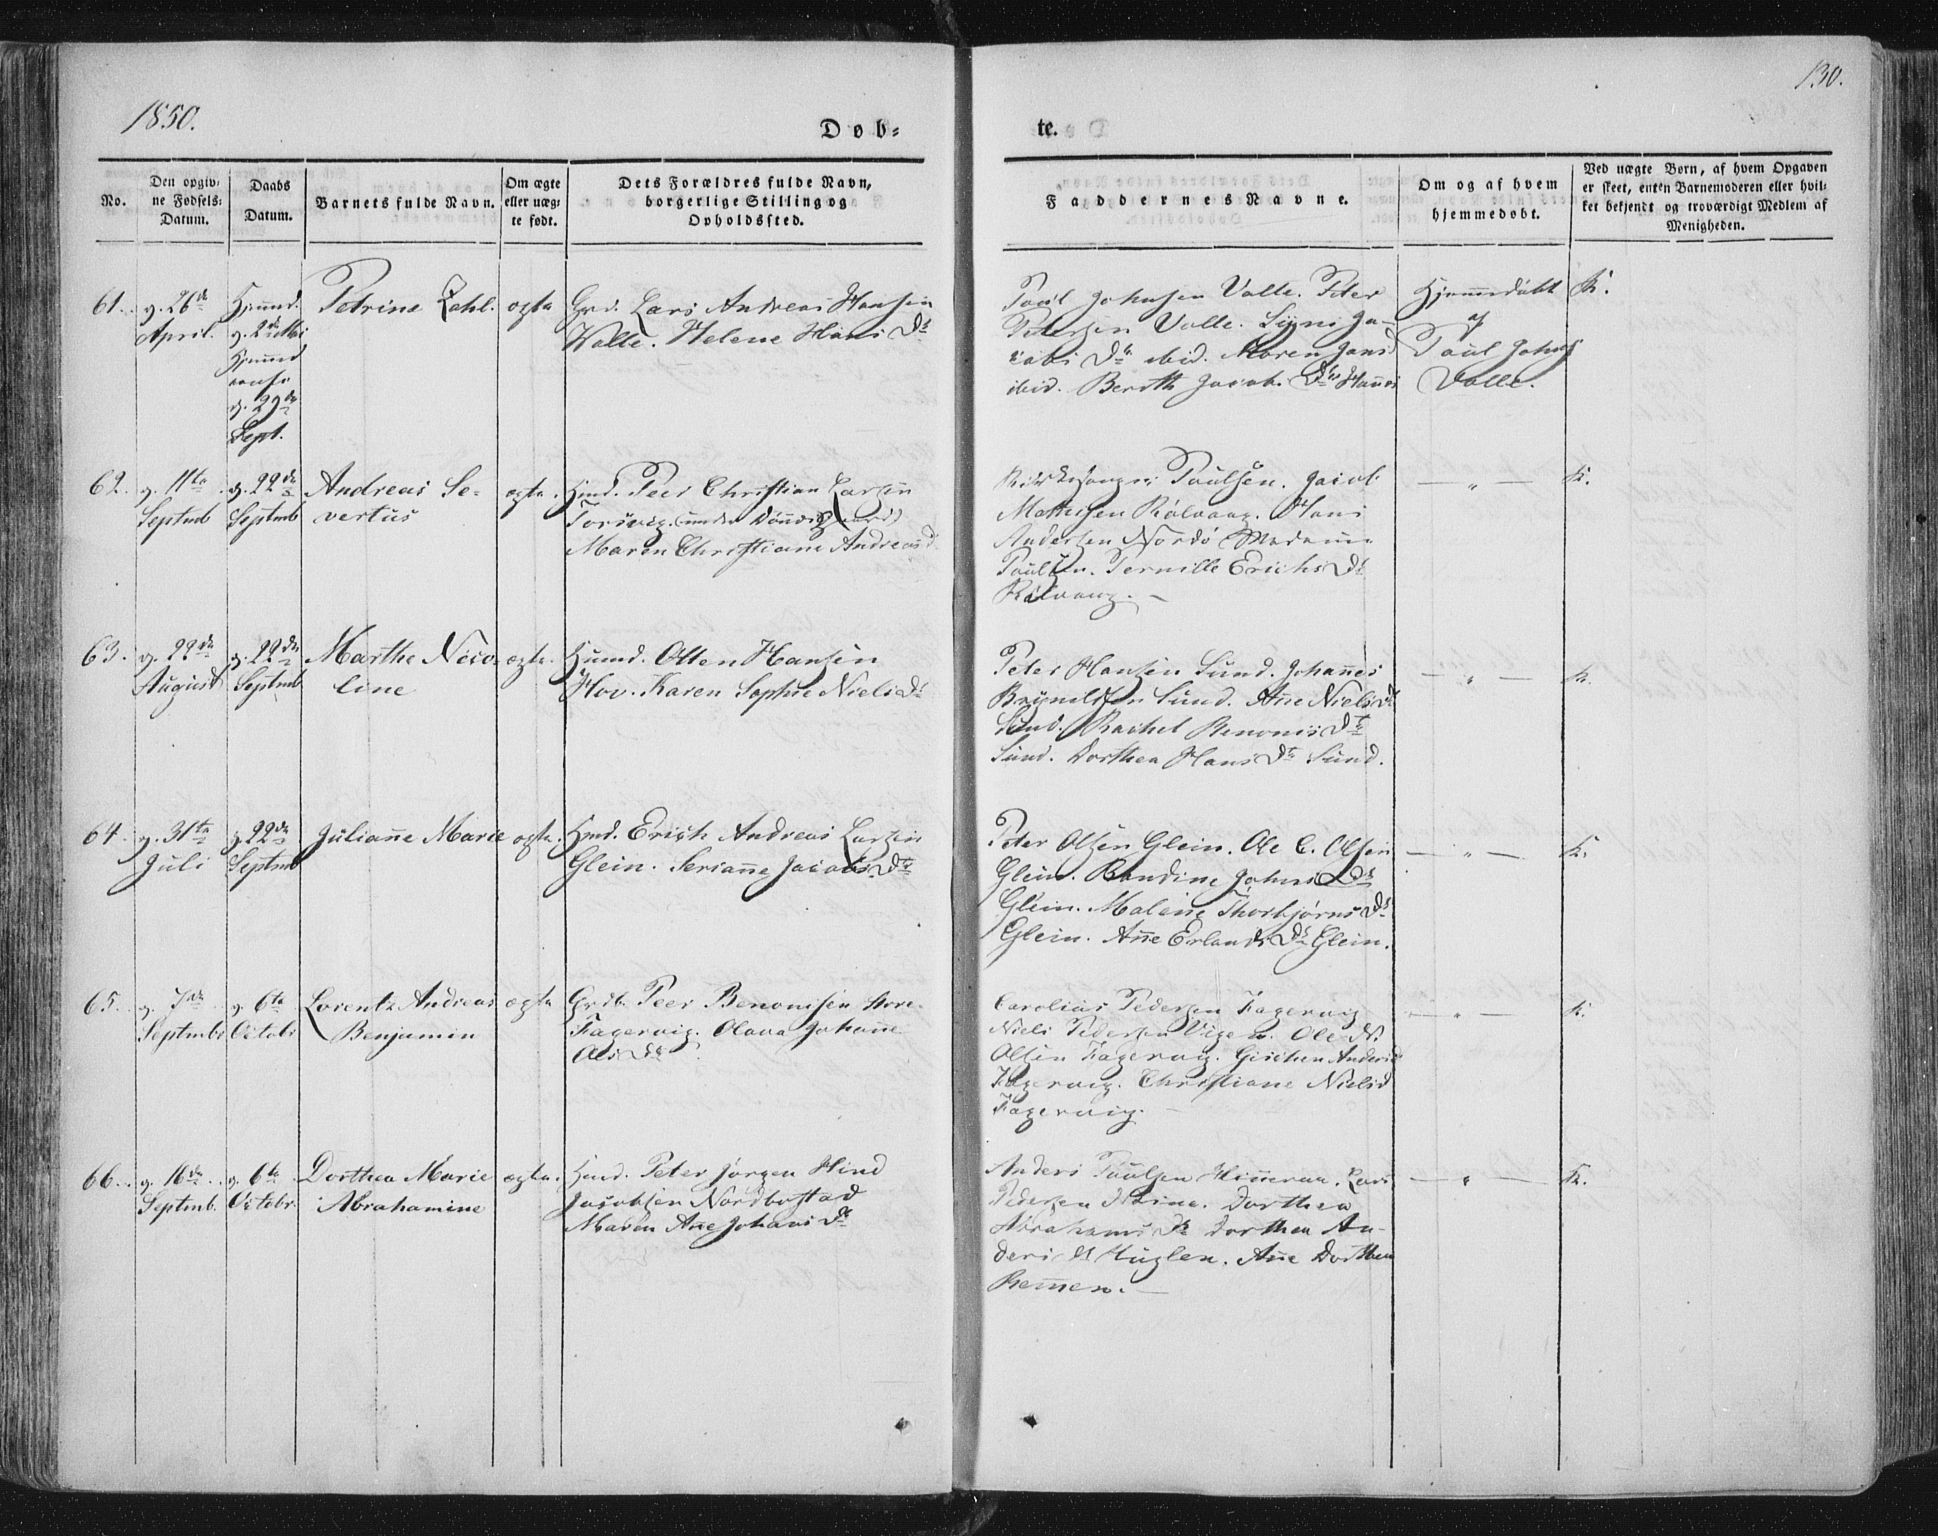 1850.
130.
Døb=
te.
No.
Den opgiv=
ne Fødsels=
Datum.
Daabs
Datum.
Barnets fulde Navn.
Om ægte
eller uæg=
te født.
Dets Forældres fulde Navn,
borgerlige Stilling og
Opholdssted.
Faddernes Navne.
Om og af hvem
hjemmedøbt.
Ved uægte Børn, af hvem Opgaven
er skeet, enten Barnemoderen eller hvil=
ket bekjendt og troværdigt Medlem af
Menigheden.
61.
d. 26de
April.
Hjemmd.
d. 2de Mai
d. 29de
Sept.
Petrine Zahl.
ægte
Grd. Lars Andreas Hansen
Valle. Helene Hans Dr
Paul Johnsen Valle. Peter
Petersen Valle. Ja=
cobs Dr. ibid. Maren Jens d
ibid. Berith Jacob. Dr
Hjemmedøbt
af
Paul Johns
Valle.
K.
62.
d. 11te
Septmb
d. 22de
Septmb
Andreas Se=
vertus
ægte.
Hmd. Peer Christian Larsen
Torsvig. (under Dønnæsgaard)
Maren Christiane Andreas d
Paulsen. Jacob
Mathisen Rølvaag. Hans
Andersen Nordø Madame
Paulsen. Pernille Erichs Dr
Rølvaag. —
— " —
K.
63.
d. 22de
August
d. 22de
Septmb
Marthe Nico=
line
ægte.
Huusmd. Otten Hansen
Hov. Karen Sophie Niels Dr
Peter Hansen Sund. Johannes
Sund. Ane Niels Dr
Sund. Rachel Benonis Dr
Sund. Dorthea Hans Dr Sund.
— " —
K.
64.
d. 31te
Juli
d. 22de
Septmb
Juliane Marie
ægte.
Hmd. Erich Andreas Larsen
Glein. Seriane Jacobs. Dr
Peter Olsen Glein. Ole C. Olsen
Glein. Bendine Johns Dr
Glein. Malene Thorbjørns Dr
Glein. Ane Erlands Dr Glein.
— " —
K.
65.
d. 7de
Septmbr
d. 6te
Octobr
Lorentz Andreas
Benjamin
ægte
Grdb. Peer Benonisen store
Fagervig. Olava Johane
Ols Dr
Carolius Pedersen Fagervig
Niels Pedersen Ole N.
Olsen Fagervig. Anders d
Fagervig. Christiane Niels d
Fagervig. —
— " —
K.
66.
d. 16de
Septmb.
d. 6te
Octobr.
Dorthea Marie
Abrahamine
ægte.
Hmd. Peter Jørgen Hind
Jacobsen Nordbostad
Maren Ane Johans Dr
Anders Paulsen Lars
Pedersen Dorthea
Abrahams Dr Dorthea An=
ders Dr Huglen. Ane Dorthea
Remen. —
— " —
K.